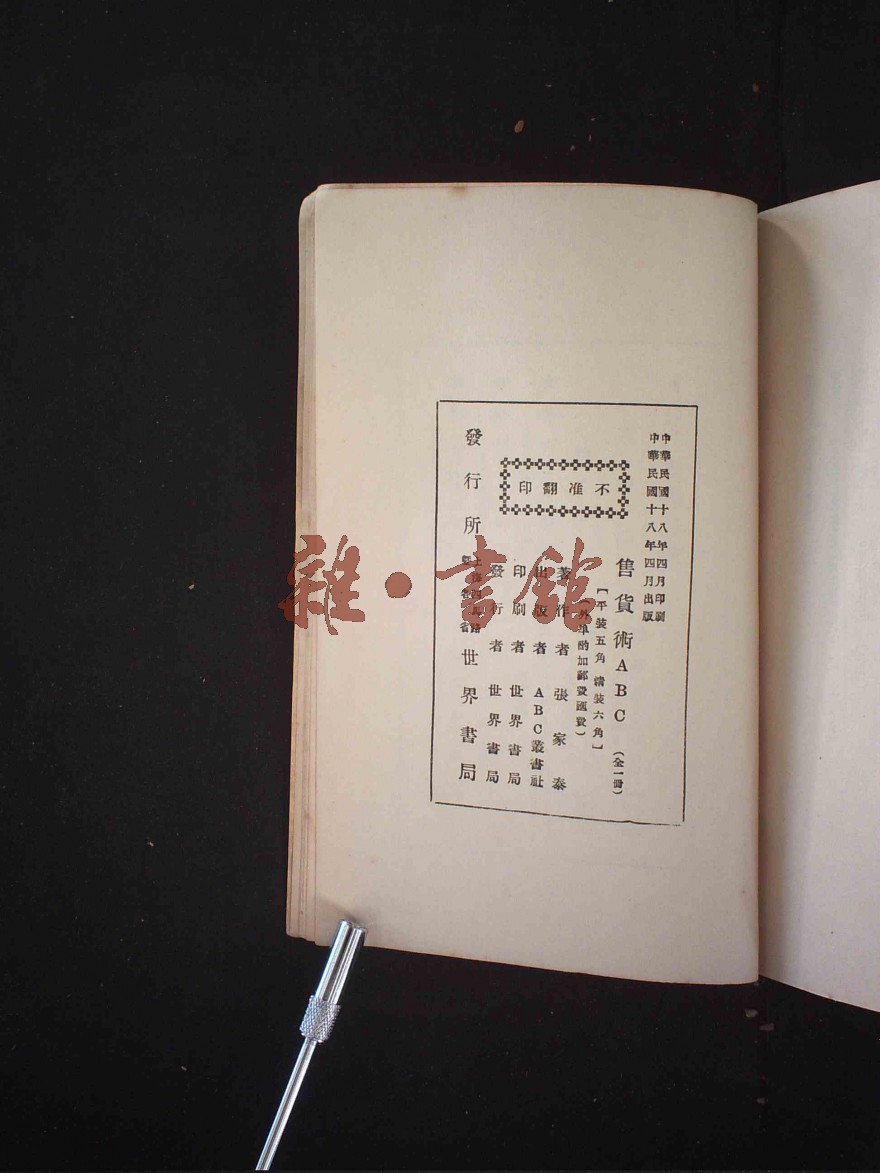 中華民國十八年四月印刷
中華民國十八年四月出版
售貨術ABC（全一冊）
【平裝五角 精裝六角】
（外埠酌加郵費匯費）
不准翻印
著作者 張家泰
出版者 ABC叢書社
印刷者 世界書局
發行者 世界書局
發行所 世界書局
雜·書館